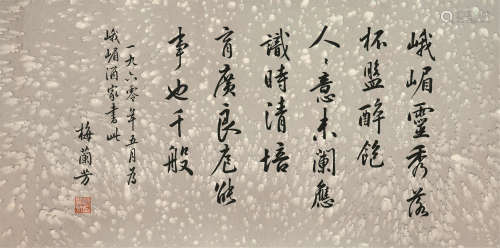 峨嵋靈秀落
杯盤醉飽
人〻意未闌應
識時清培
育廣良庖能
事也千般
一九六〇年五月為
峨嵋酒家書此
梅蘭芳